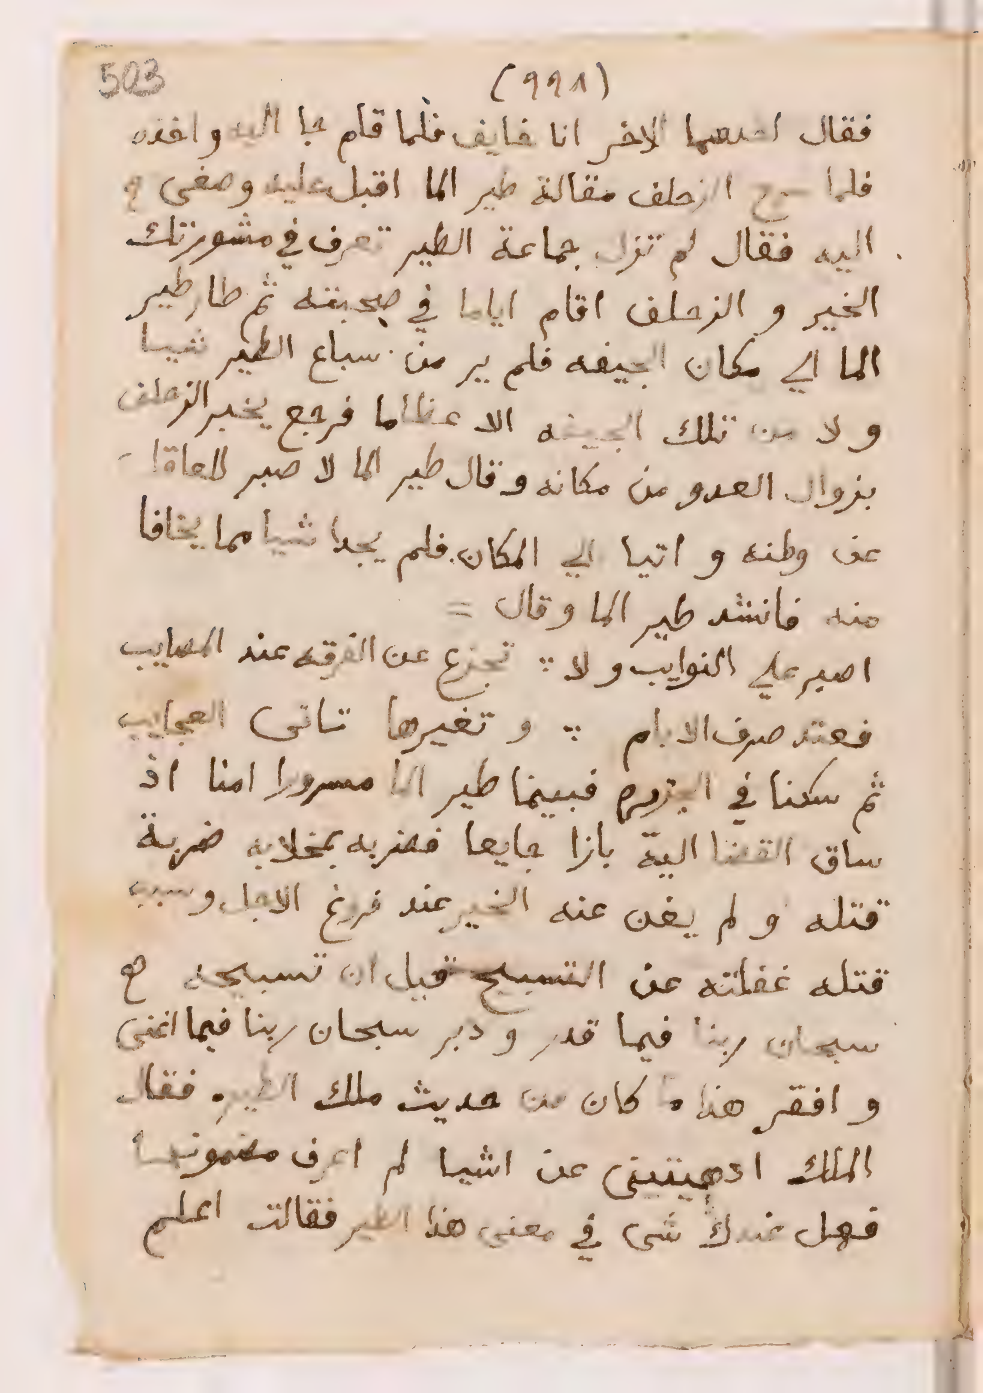 503
(٩٩٨)
فقال احدهما الاخر انا خايف فلما قام جا اليه واخذه
فلما سمع الزحلف مقالة طير الما اقبل عليه وصغى
اليه فقال لم تزل جماعة الطير تعرف في مشورتك
الخير و الزحلف اقام اياما في صحبته ثم طار طير
الما الي مكان الجيفه فلم ير من سباع الطير شيا
و لا من تلك الجيفه الا عظاما فرجع يخبر الزحلف
بزوال العدو من مكانه وقال طير الما لا صبر للعاقل
عن وطنه و اتيا الي المكان فلم يجدا شيا مما يخافا
منه فانشد طير الما وقال =
اصبر علي النوايب ولا ∴ تجزع عن الفرقه عند المصايب
فعند صرف الايام ∴ و تغيرها تاتى العجايب
ثم سكنا في الجزيره فبينما طير الما مسرورا امنا اذ
ساق القضا الية بازا جايعا فضربه بمخلابه ضربة
قتله و لم يغن عنه الخير عند فروغ الاجل وسبب
قتله غفلته عن التسبيح قيل ان تسبيحه
سبحان ربنا فيما قدر و دبر سبحان ربنا فيما اغنى
و افقر هذا ما كان من حديث ملك الطير فقال
الملك ادهيتينى عن اشيا لم اعرف مضمونها
فهل عندك شى في معنى هذا الطير فقالت اعلم